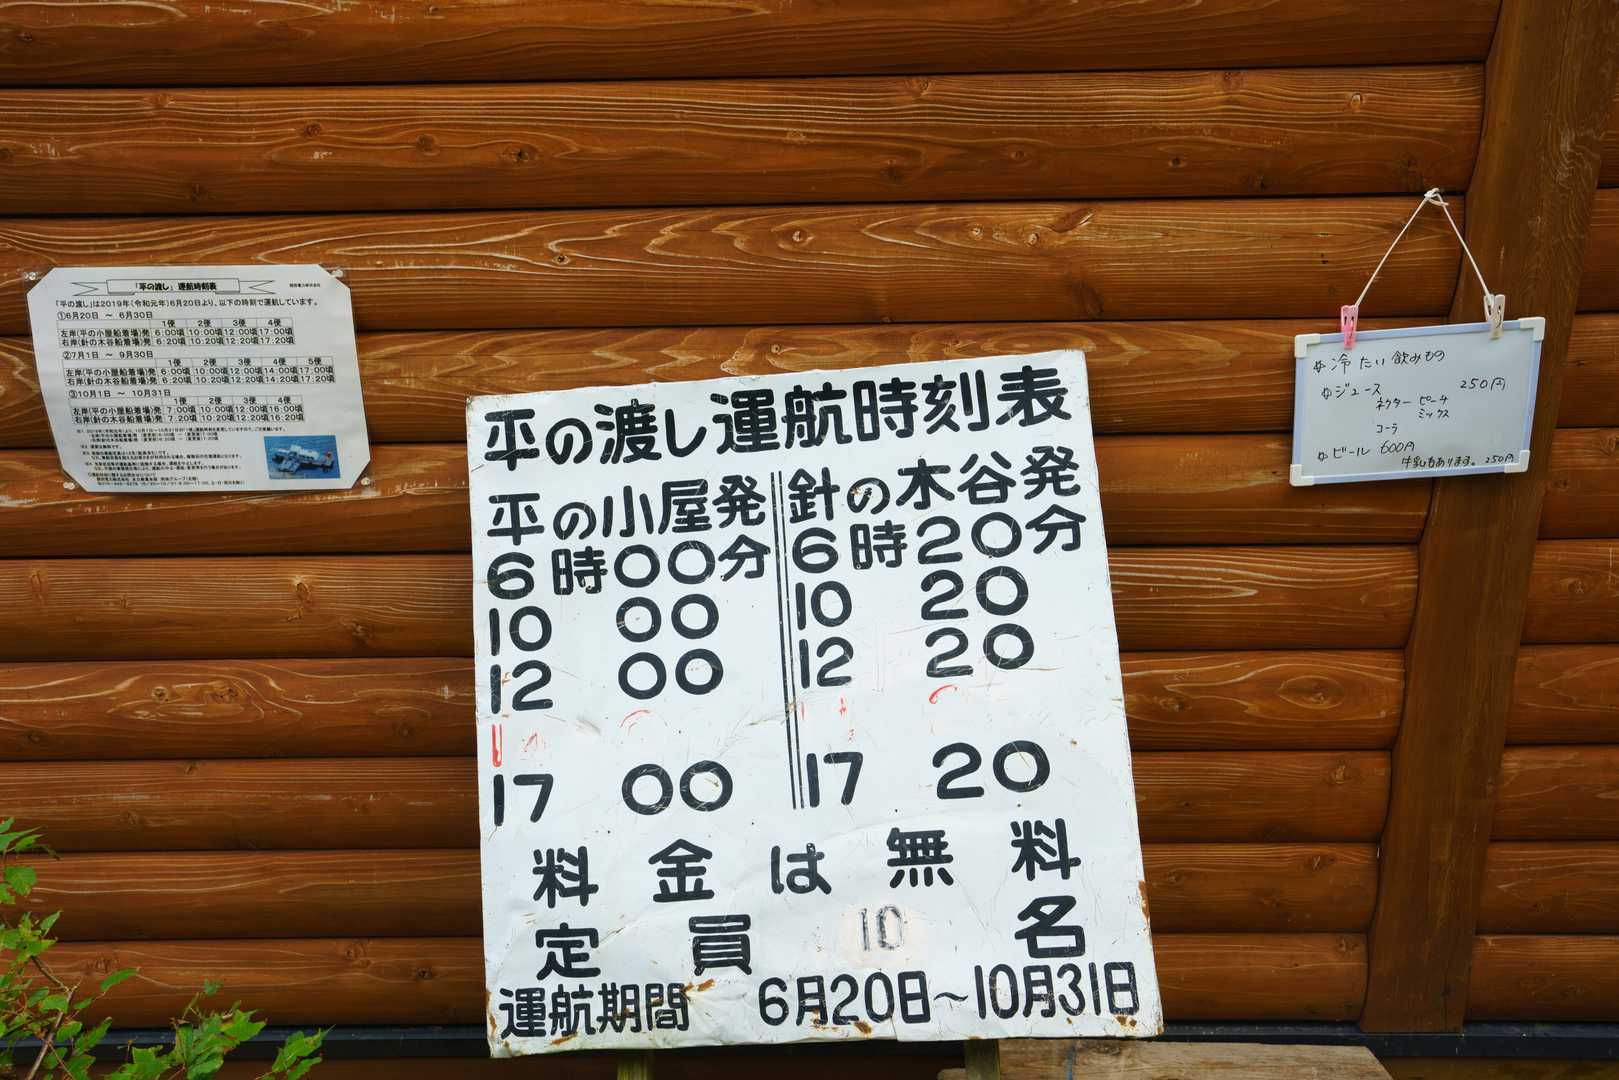 「平の渡し」運航時刻表
関西電力株式会社
「平の渡し」は2019年(令和元年)6月20日より、以下の時刻で運航しています。
①6月20日 ～ 6月30日
1便 2便 3便 4便
左岸(平の小屋船着場)発 6:00頃 10:00頃 12:00頃 17:00頃
右岸(針の木谷船着場)発 6:20頃 10:20頃 12:20頃 17:20頃
②7月1日 ～ 9月30日
1便 2便 3便 4便 5便
左岸(平の小屋船着場)発 6:00頃 10:00頃 12:00頃 14:00頃 17:00頃
右岸(針の木谷船着場)発 6:20頃 10:20頃 12:20頃 14:20頃 17:20頃
③10月1日 ～ 10月31日
1便 2便 3便 4便
左岸(平の小屋船着場)発 7:00頃 10:00頃 12:00頃 16:00頃
右岸(針の木谷船着場)発 7:20頃 10:20頃 12:20頃 16:20頃
平の渡し運航時刻表
平の小屋発 針の木谷発
6時00分 6時20分
10 00 10 20
12 00 12 20
17 00 17 20
料金は無料
定員 10 名
運航期間 6月20日～10月31日
冷たい飲みもの
ジュース 250円
ネクター ピーチ
ミックス
コーラ
ビール 600円
牛乳もあります。250円